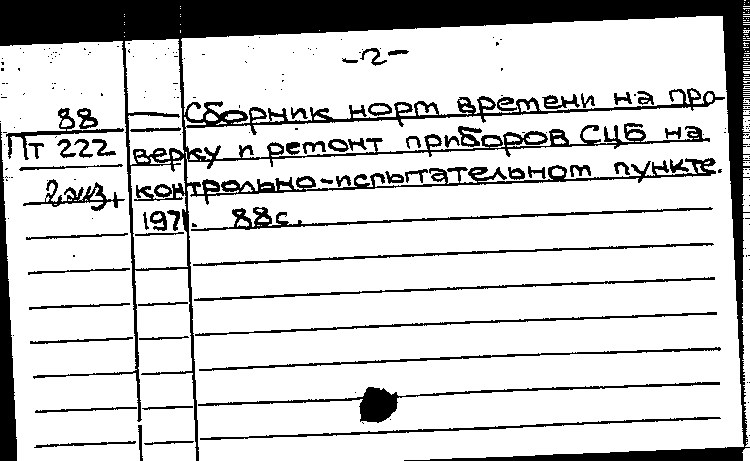 -2-
88 — Сборник норм времени на про-
Пт 222 верку и ремонт приборов СЦБ на
2 экз+ контрольно-испытательном пункте.
1971. 88с.